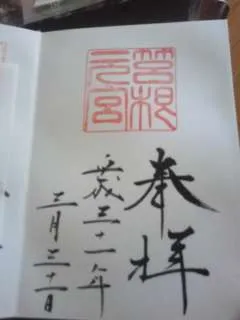 奉拝
平成三十一年
三月三十一日
元宮